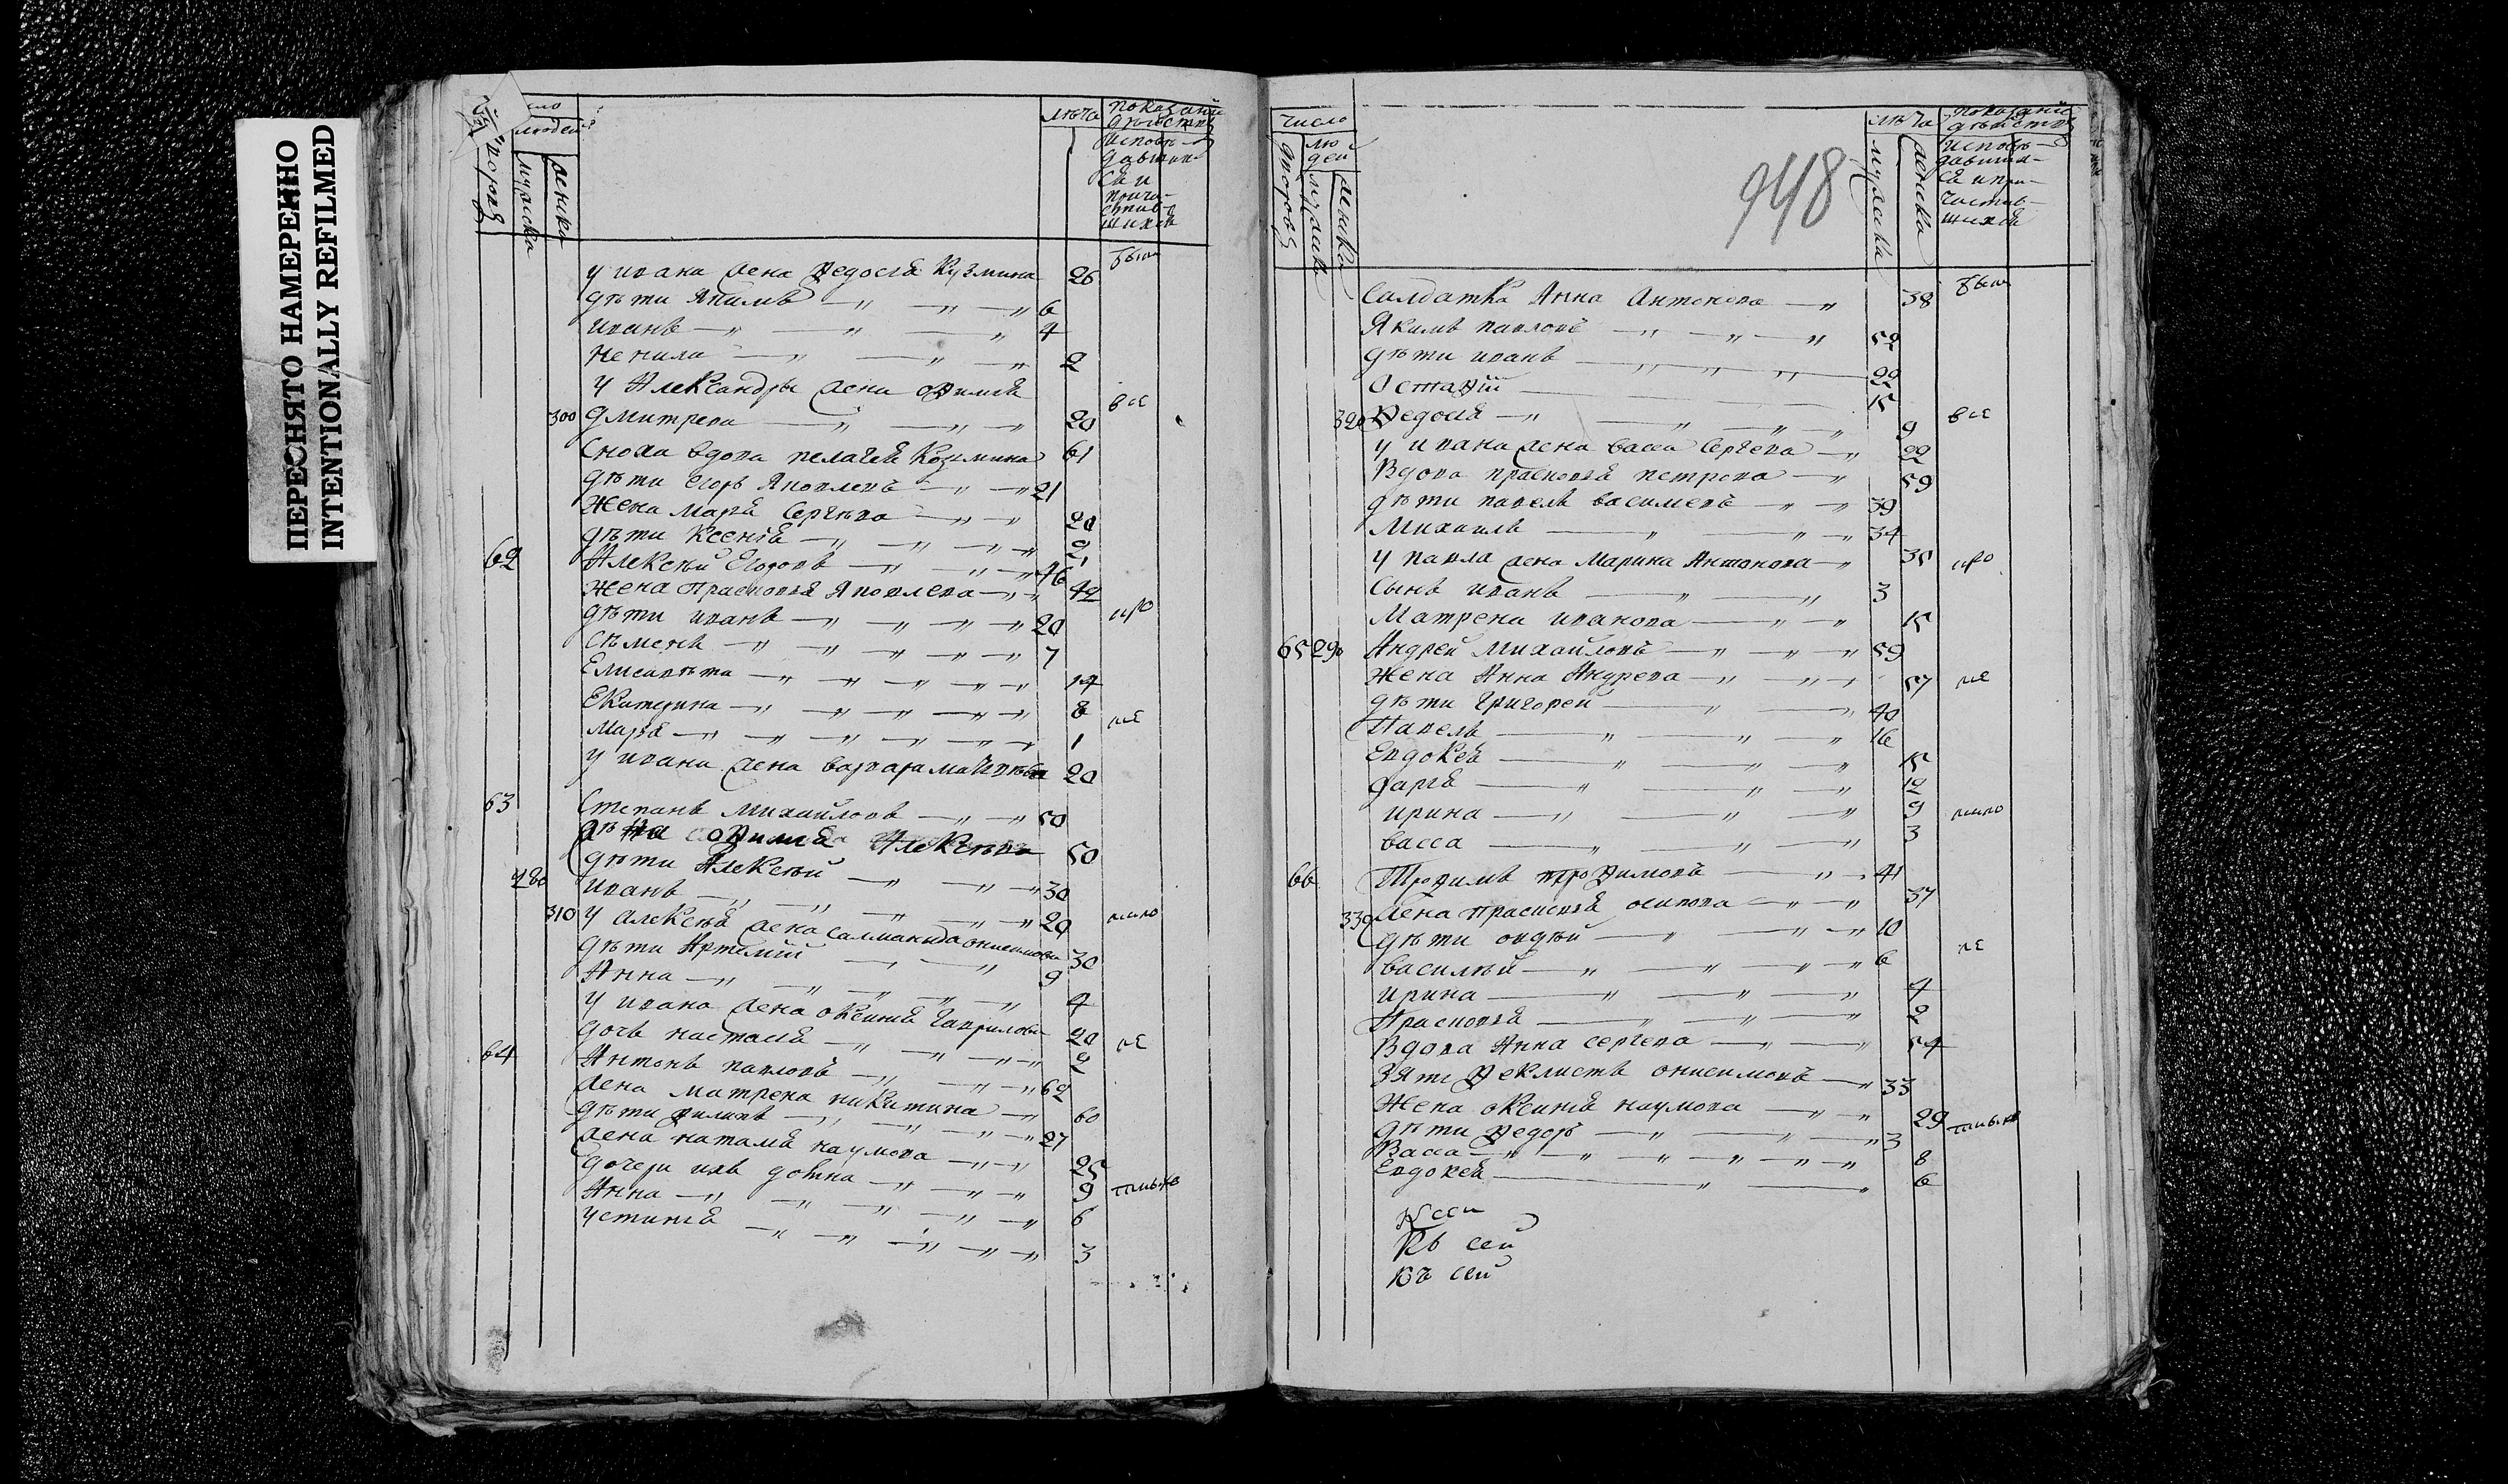 ПЕРЕСНЯТО НАМЕРЕННО
INTENTIONALLY REFILMED
людей
дворовъ
мужеска
женска
лѣта
показанїе
дѣйства
Исповѣ-
давших
ся и
прича-
стив-
шихся
у ивана жена Ѳедосья Кузмина 26
дѣти Якимъ 6
иванъ 4
Ненила 2
у Александры жена Ефимья
300 дмитрева 20 все
Сноха вдова пелагея Козмина 61
дѣти егоръ Яковлевъ 21
Жена Марья Сергѣва 20
дѣти Ксенья 2
62 Алексѣй Егоровъ 46
жена Прасковья Яковлева 42
дѣти иванъ 20
Сѣменъ 7
Елисавѣта 14
Екатерина 8
Марья 1
у ивана жена варвара 20
63 Степанъ Михайловъ 50
Алексѣва 50
дѣти Алексѣй 30
280 Иванъ 20
310 у алексѣя жена онисимова 30
дѣти Артемїй 9
Анна 4
у ивана жена оксинья гаврилова 20
дочь настасья 2
64 Антонъ павловъ 62
жена матрена никитина 60
дѣти филипъ 27
жена наталья наумова 25
дочери ихъ домна 9
Анна 6
устинья 3
948
число
людей
дворовъ
мужеска
женска
лѣта
мужеска
женска
показанїе
дѣйства
Исповѣ-
давши-
ся и при-
частив-
шихся
Салдатка Анна Антонова 38
Якимъ павловъ 52
дѣти иванъ 22
Остафїй 15
320 Ѳедосья 9 все
у ивана жена васса Сергева 22
Вдова прасковья петрова 59
дѣти павелъ васильевъ 39
Михаилъ 34
у павла жена Марина Антонова 35
Сынъ иванъ 3
Матрена иванова 15
65 290 Андрей Михайловъ 59
Жена Анна Андрева 57
дѣти Григорей 40
Павелъ 16
Евдокея 15
дарья 12
ирина 9
васса 3
66 Трофимъ трофимовъ 41
330 жена прасковья осипова 37
дѣти авдѣй 10
василѣй 6
ирина 4
Прасковья 2
Вдова Анна сергева 54
Зять Ѳеклистъ онисимовъ 33
Жена оксинья наумова 29
дѣти Ѳедоръ 3
Васса 8
Евдокея 6
Къ сей
Въ сей